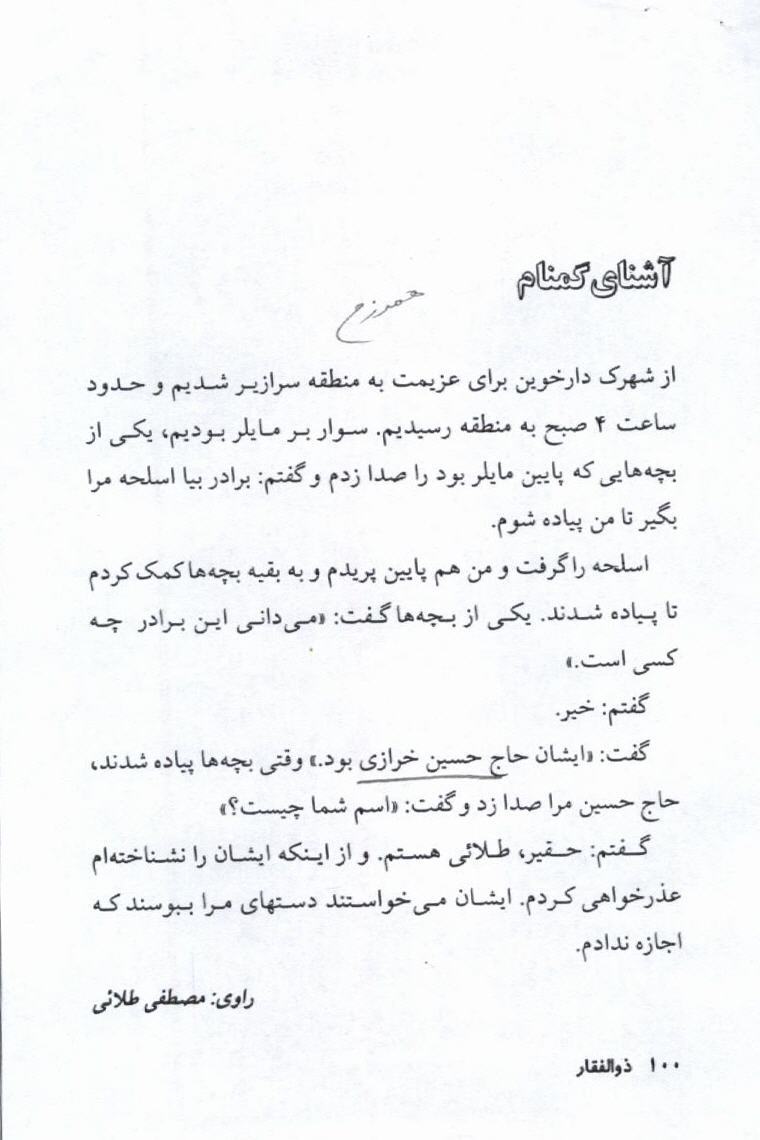 آشنای گمنام
همرزم
از شهرک دارخوین برای عزیمت به منطقه سرازیر شدیم و حدود
ساعت ۴ صبح به منطقه رسیدیم. سوار بر مایلر بودیم، یکی از
بچه‌هایی که پایین مایلر بود را صدا زدم و گفتم: برادر بیا اسلحه مرا
بگیر تا من پیاده شوم.
اسلحه را گرفت و من هم پایین پریدم و به بقیه بچه‌ها کمک کردم
تا پیاده شدند. یکی از بچه‌ها گفت: «می‌دانی این برادر چه
کسی است.»
گفتم: خیر.
گفت: «ایشان حاج حسین خرازی بود.» وقتی بچه‌ها پیاده شدند،
حاج حسین مرا صدا زد و گفت: «اسم شما چیست؟»
گفتم: حقیر، طلائی هستم. و از اینکه ایشان را نشناخته‌ام
عذرخواهی کردم. ایشان می‌خواستند دستهای مرا ببوسند که
اجازه ندادم.
راوی: مصطفی طلائی
۱۰۰ ذوالفقار